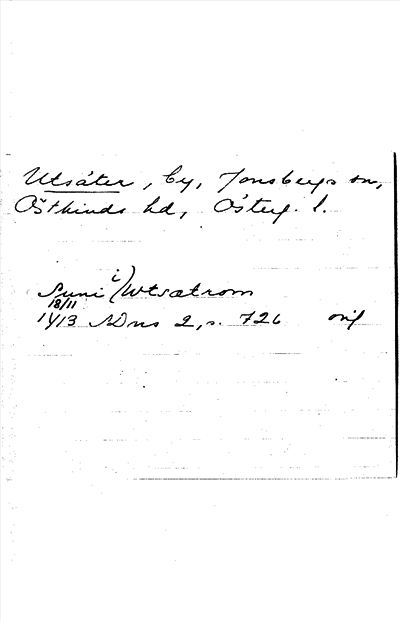 Utsäter, by, Jonsbergs sn,
Östkinds hd, Österg. l.
Suni i) Wtsætrom
18/11
1413 SDns 2, s. 726 orig